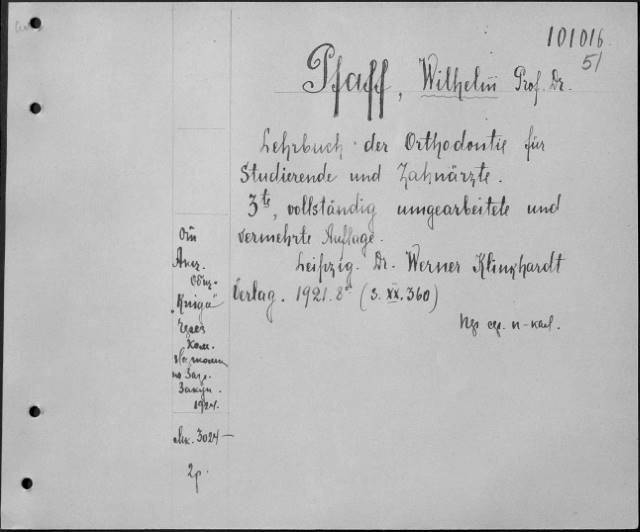 101016
51
Pfaff, Wilhelm Prof. Dr.
Lehrbuch der Orthodontie für
Studierende und Zahnärzte.
3te, vollständig umgearbeitete und
vermehrte Auflage.
Leipzig. Dr. Werner Klinkhardt
Verlag. 1921. 8° (S. XX. 360)
От
Акц.
Общ.
„Книга"
через
Ком.
по Загр.
Закуп.
1924.
3024 —
2р.